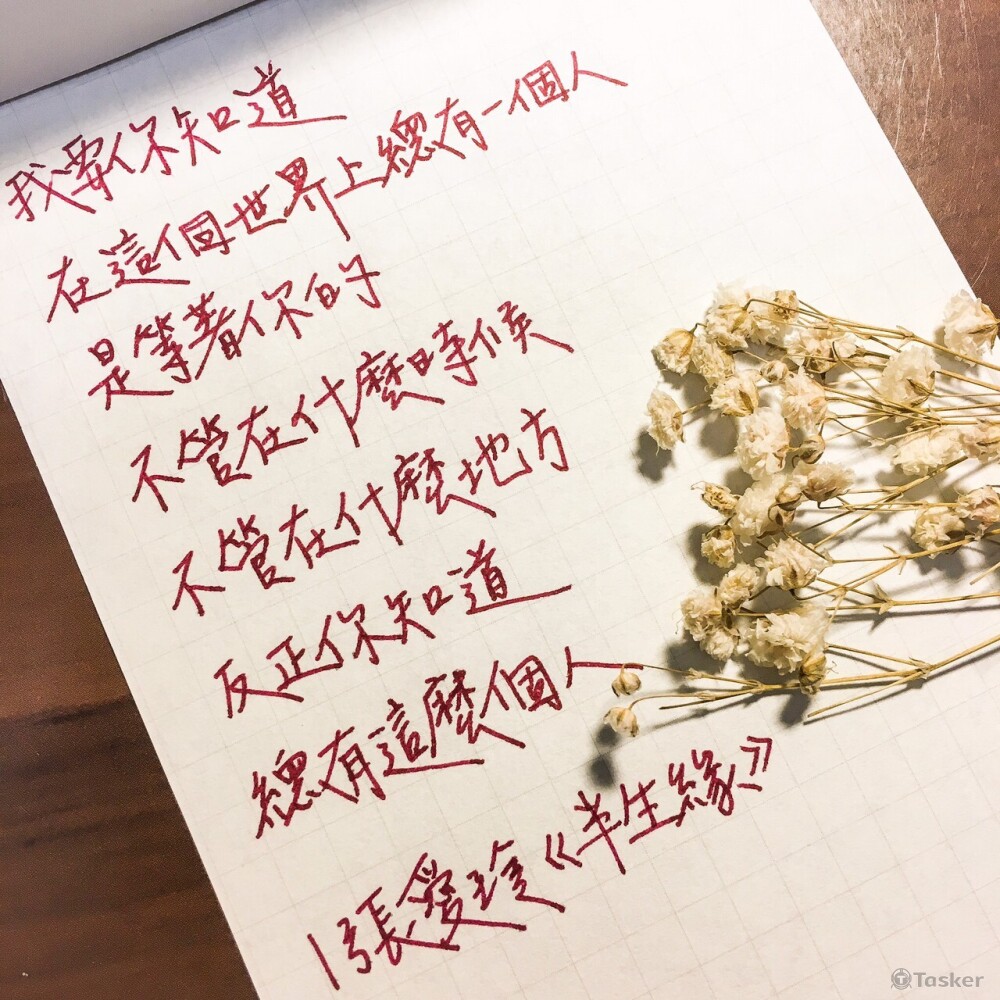 我要你知道
在這個世界上總有一個人
是等著你的
不管在什麼時候
不管在什麼地方
反正你知道
總有這麼個人
|張愛玲《半生緣》
Tasker